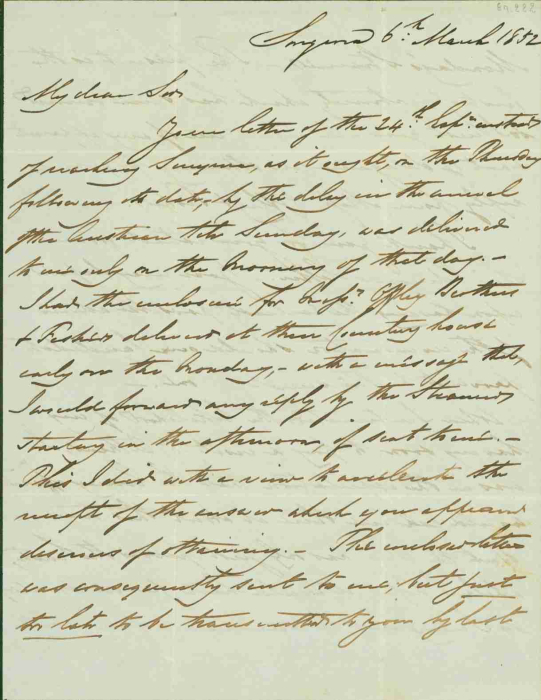 Smyrna 6th March 1852
My dear Sir
Your letter of the 24th instead
of reaching Smyrna, as it ought, on the Thursday
following its date, by the delay in the arrival
of the Austrian till Sunday, was delivered
to me only on the morning of that day. -
I had the enclosure for Messrs. Brothers
& delivered at their Counting house
early on the Monday, - with a message that
I would forward any reply by the Steamer
starting in the afternoon, if sent to me. -
This I did with a view to accelerate the
receipt of the answer which you appeared
desirous of obtaining. - The enclosed letter
was consequently sent to me, but just
too late to be transmitted to you by last